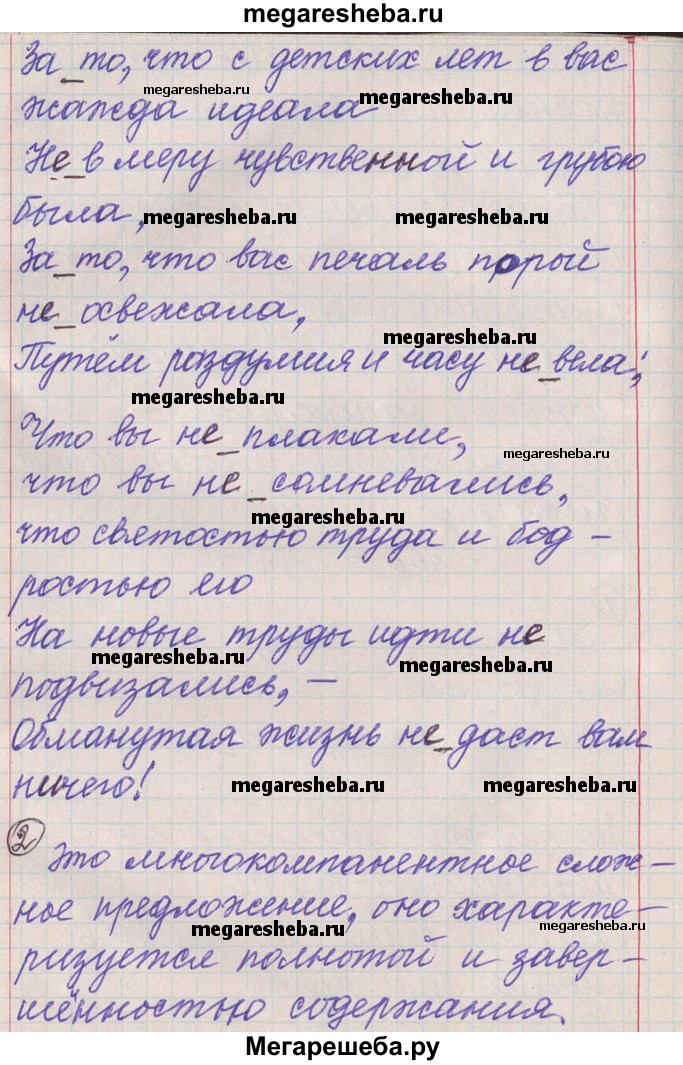 megaresheba.ru
За_то, что с детских лет в вас
жажда идеала
megaresheba.ru
megaresheba.ru
Не_в меру чувственной и грубою
была,
megaresheba.ru
megaresheba.ru
За_то, что вас печаль порой
не_освежала,
megaresheba.ru
Путём раздумия и часу не_вела;
megaresheba.ru
Что вы не_плакали,
megaresheba.ru
что вы не_сомневались,
megaresheba.ru
что святостью труда и бод-
ростью его
На новые труды идти не
megaresheba.ru
megaresheba.ru
подвизались, —
Обманутая жизнь не_даст вам
ничего!
megaresheba.ru
megaresheba.ru
2
Это многокомпанентное слож-
ное предложение, оно характе-
megaresheba.ru
megaresheba.ru
ризуется полнотой и завер-
шённостью содержания.
Мегарешеба.ру